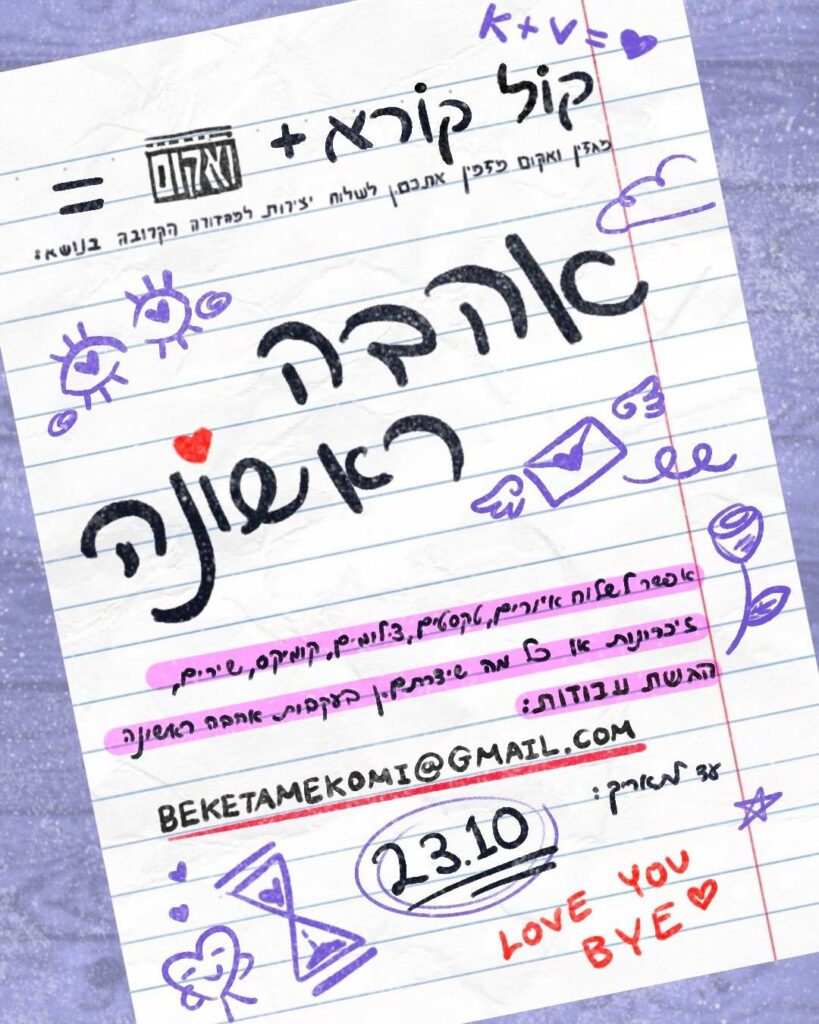 K + V = ♥
קול קורא + ואקום =
מגזין ואקום מזמין אתכםן לשלוח יצירות למהדורה הקרובה בנושא:
אהבה
ראשונה
אפשר לשלוח איורים, טקסטים, צילומים, קומיקס, שירים,
זיכרונות או כל מה שיצרתם.ן בעקבות אהבה ראשונה
הגשת עבודות:
BEKETAMEKOMI@GMAIL.COM
עד לתאריך:
23.10
LOVE YOU
BYE ♥